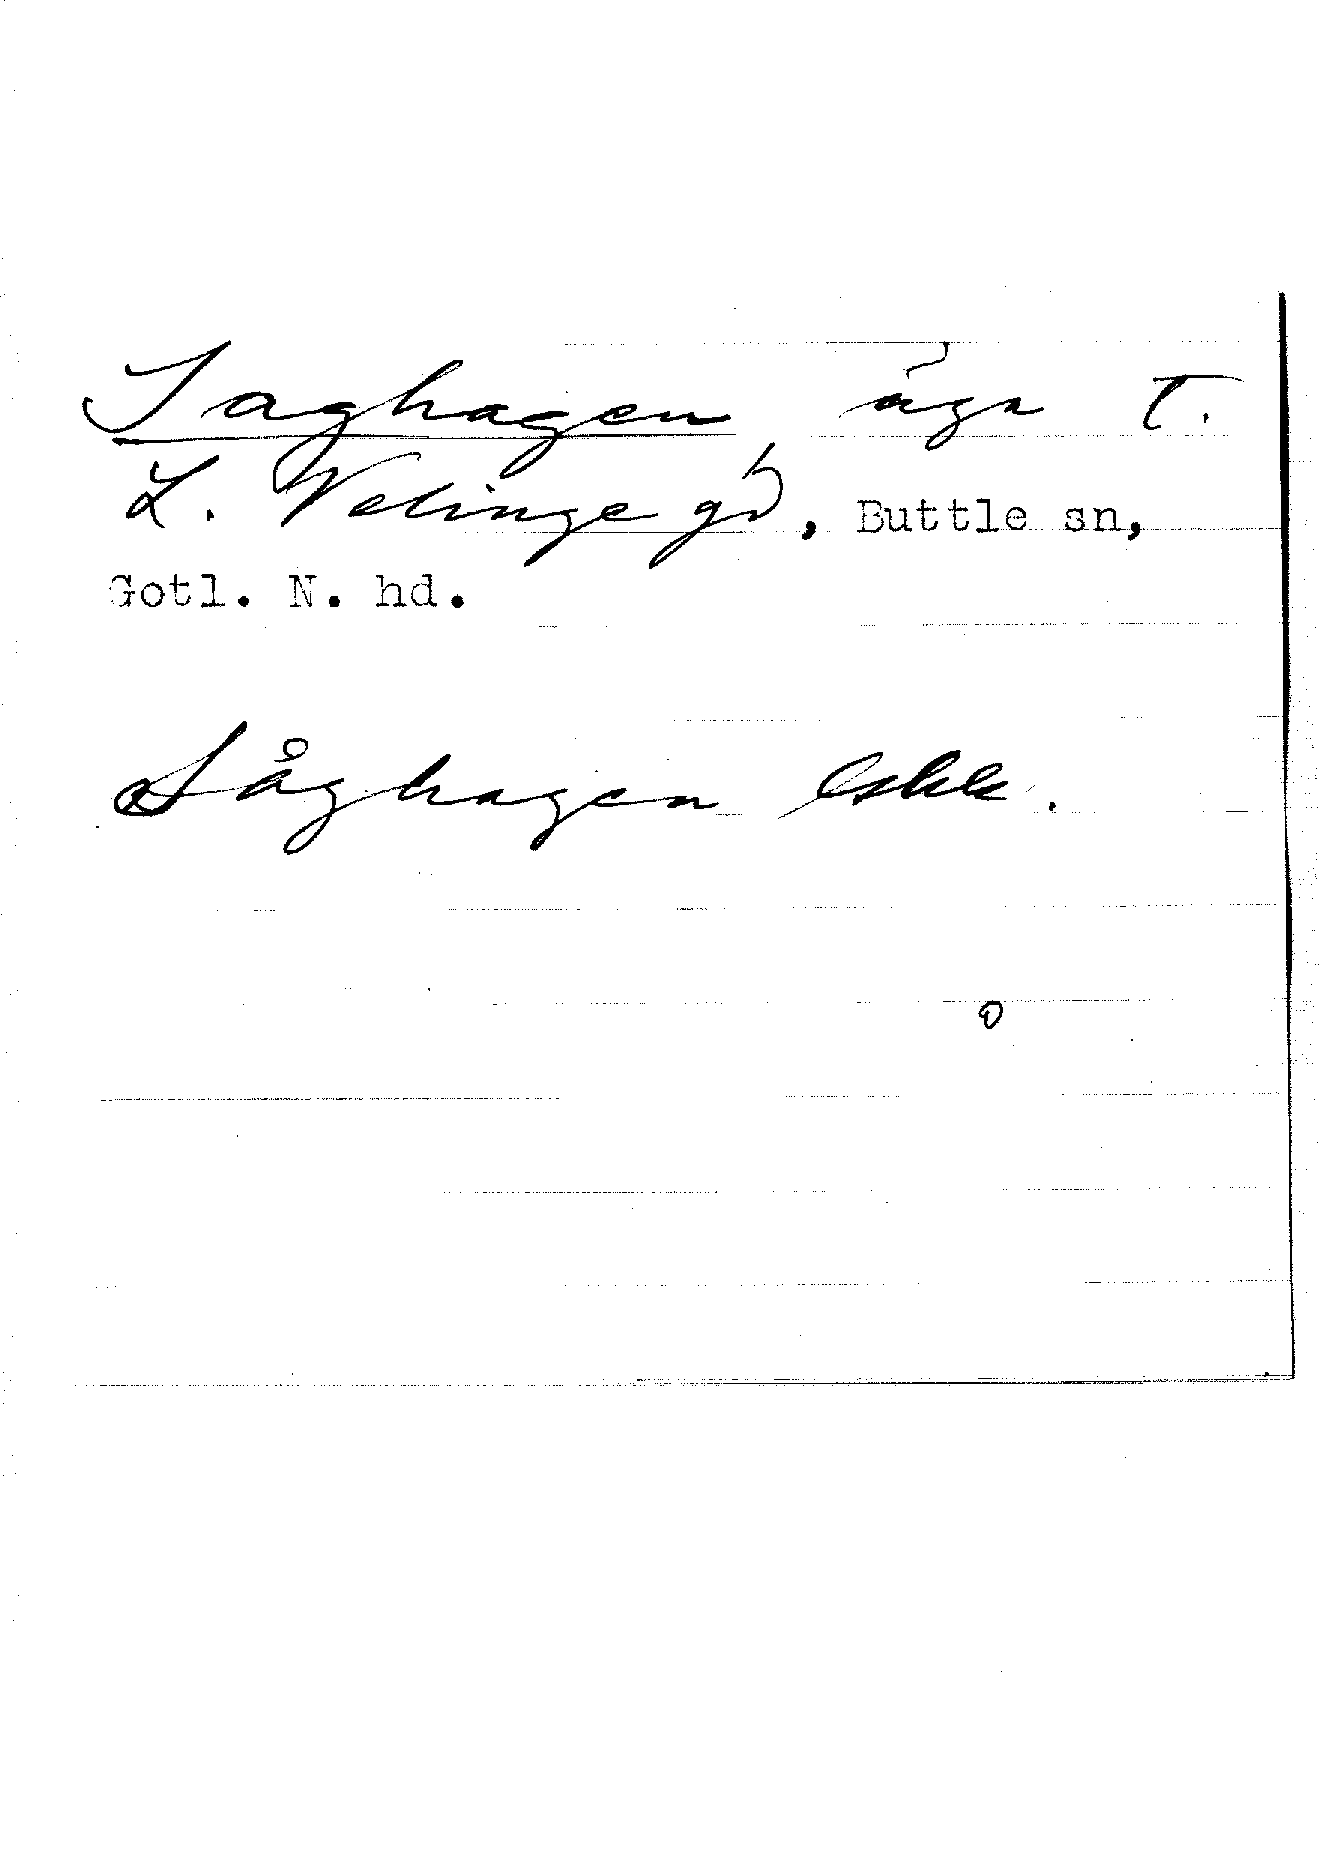 Saghagen äga t.
L. Velinge gd, Buttle sn,
Gotl. N. hd.
Såghagen